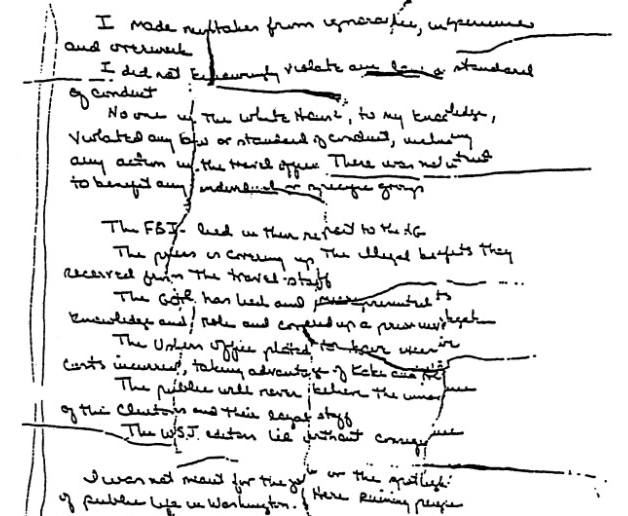 I made mistakes from ignorance, inexperience
and overwork
I did not knowingly violate any law or standard
of conduct
No one in The White House, to my knowledge,
violated any law or standard of conduct, including
any action in the travel office. There was no intent
to benefit any individual or specific group
The FBI lied in their report to the AG
The press is covering up the illegal benefits they
received from the travel staff
The GOP has lied and misrepresented its
knowledge and role and covered up a prior investigation
The Ushers Office plotted to have excessive
costs incurred, taking advantage of Kaki and HRC
The public will never believe the innocence
of the Clintons and their loyal staff
The WSJ editors lie without consequence
I was not meant for the job or the spotlight
of public life in Washington. Here ruining people